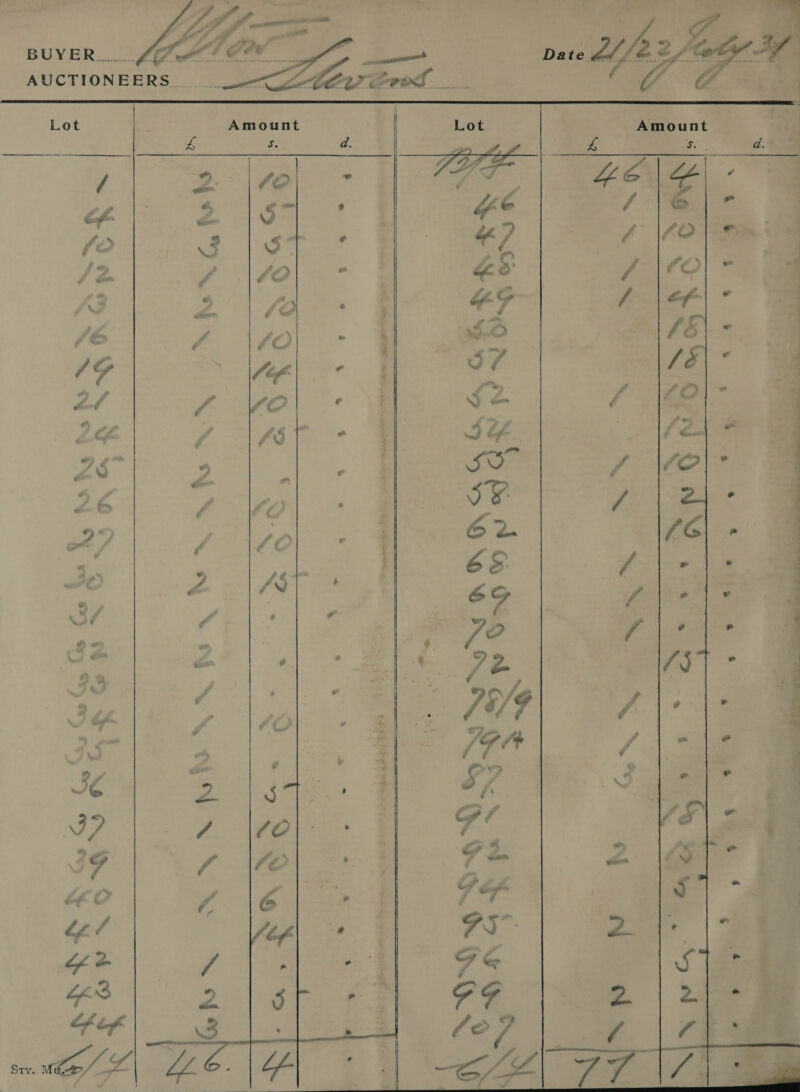 BUYER
Date 21/22 July 31
AUCTIONEERS
Lot Amount Lot Amount
£ s. d. £ s. d.
B/F 46 4 -
1 2 10 -
46 1 6 -
4 2 5 -
47 1 10 -
10 3 5 -
48 1 10 -
12 1 10 -
49 1 4 -
13 2 10 -
50 18 -
16 1 10 -
51 18 -
19 14 -
52 1 10 -
21 1 10 -
54 12 -
24 1 15 -
55 1 10 -
25 2 - -
58 1 2 -
26 1 10 -
62 16 -
27 1 10 -
68 1 - -
30 2 15 -
69 1 - -
31 1 - -
70 1 - -
32 2 - -
72 15 -
33 1 - -
78/9 1 - -
34 1 10 -
79A 1 - -
35 2 - -
87 3 - -
36 2 5 -
91 18 -
37 1 10 -
92 2 15 -
39 1 10 -
94 5 -
40 1 6 -
95 2 - -
41 14 -
96 5 -
42 1 - -
99 2 2 -
43 2 5 -
107 1 1 -
44 3 - -
C/F 77 1 -
C/F 46. 4 -